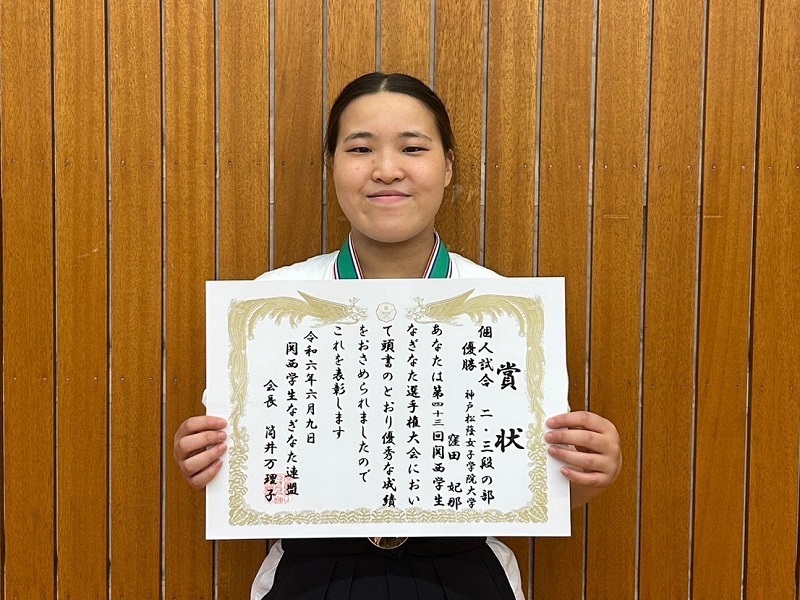 賞状
個人試合　二・三段の部
優勝　神戸松蔭女子学院大学
窪田　妃那
あなたは第四十三回関西学生
なぎなた選手権大会におい
て頭書のとおり優秀な成績
をおさめられましたので
これを表彰します
令和六年六月九日
関西学生なぎなた連盟
会長　筒井万理子